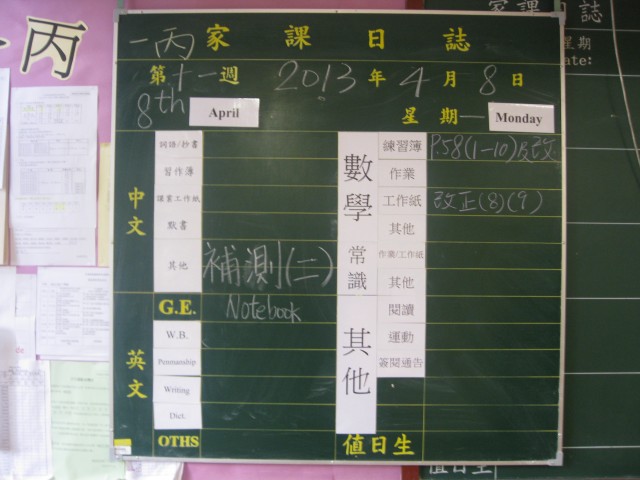 一丙
一丙家課日誌
第十一週 2013年4月8日
8th April 星期一 Monday
中文
詞語/抄書
習作簿
課業工作紙
默書
其他 補測(二)
英文
G.E. Notebook
W.B.
Penmanship
Writing
Dict.
OTHS
數學
練習簿 P.58(1-10)及改
作業
工作紙 改正(8)(9)
其他
常識
作業/工作紙
其他
其他
閱讀
運動
簽閱通告
值日生
家課日誌
星期
Date:
值日生